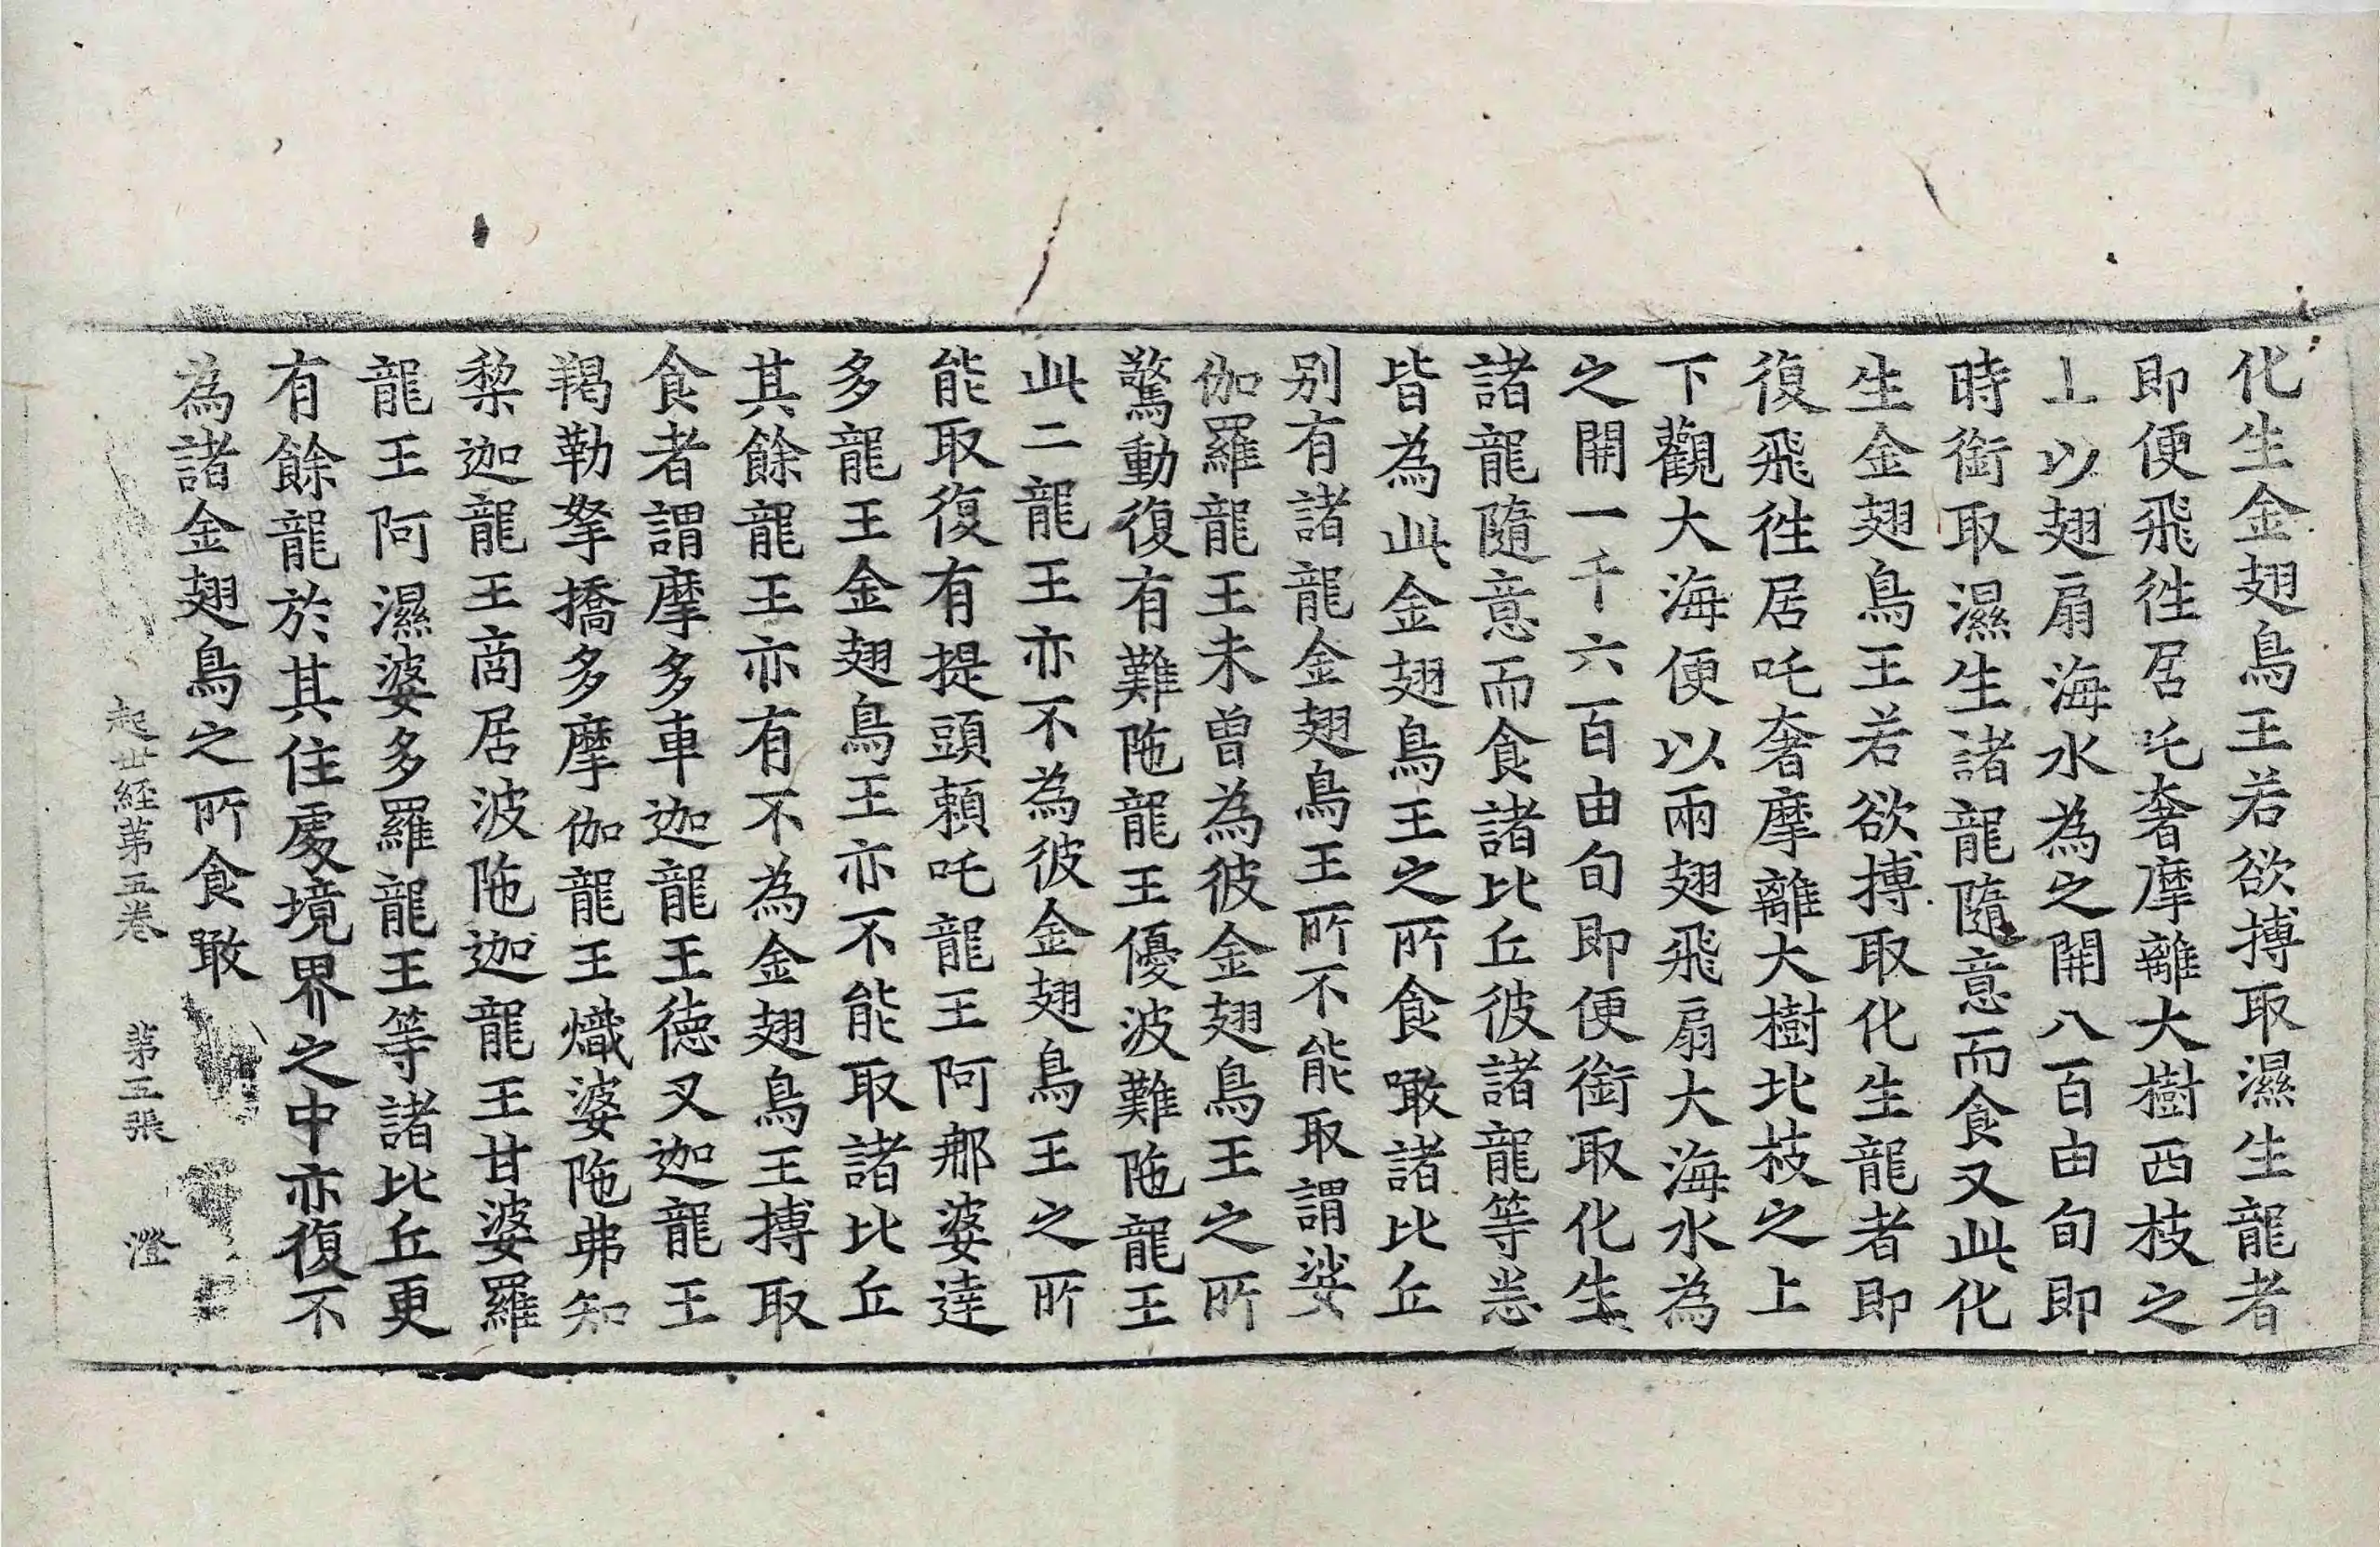 化生金翅鳥王若欲搏取濕生龍者
即便飛往居吒奢摩離大樹西枝之
上以翅扇海水為之開八百由旬即
時銜取濕生諸龍隨意而食又此化
生金翅鳥王若欲搏取化生龍者即
復飛往居吒奢摩離大樹北枝之上
下觀大海便以兩翅飛扇大海水為
之開一千六百由旬即便銜取化生
諸龍隨意而食諸比丘彼諸龍等悉
皆為此金翅鳥王之所食噉諸比丘
别有諸龍金翅鳥王所不能取謂娑
伽羅龍王未曾為彼金翅鳥王之所
驚動復有難陁龍王優波難陁龍王
此二龍王亦不為彼金翅鳥王之所
能取復有提頭頼吒龍王阿那婆達
多龍王金翅鳥王亦不能取諸比丘
其餘龍王亦有不為金翅鳥王搏取
食者謂摩多車迦龍王德叉迦龍王
羯勒拏橋多摩伽龍王熾婆陁弗知
梨迦龍王商居波陁迦龍王甘婆羅
龍王阿濕婆多羅龍王等諸比丘更
有餘龍於其住處境界之中亦復不
為諸金翅鳥之所食噉
起世経第五卷 第五張 澄